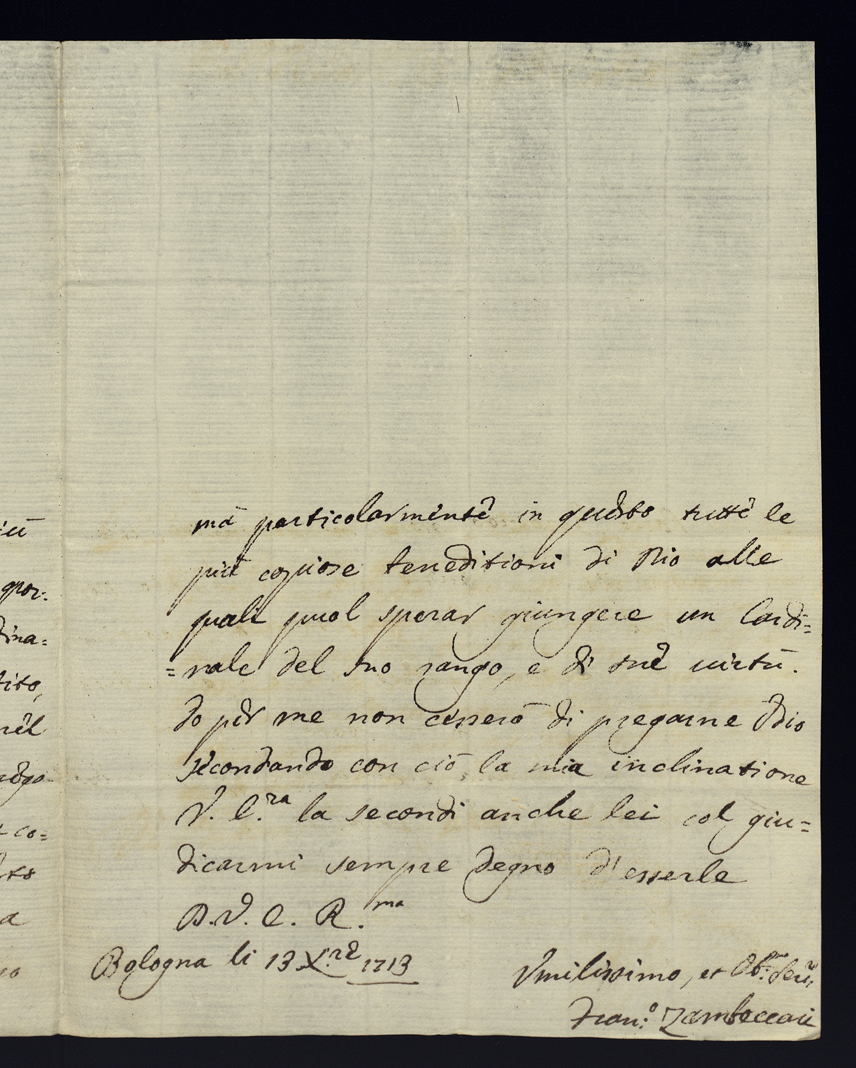 mà particolarmente in questo tutte le
più copiose beneditioni di Dio alle
quali puol sperar giungere un Cardi=
=nale del suo rango, e di sue uirtù.
Io per me non cesserò di pregarne Iddio
secondando con ciò la mia inclinatione
V. E.ra la secondi anche lei col giu=
dicarmi sempre degno d'esserle
D. V. E. R.ma
Bologna li 13 Xre 1713
Vmilissimo, et Ob.mo Seru.
Fran.o Zambeccari
iù
por:
dina=
tito,
nel
co=
a